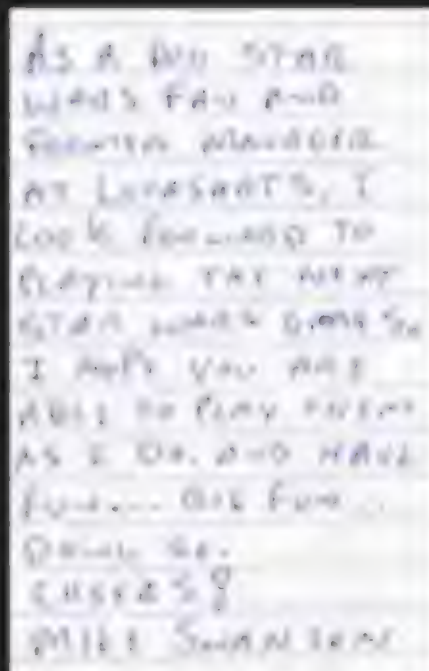 AS A BIG STAR
WARS FAN AND
FORMER MANAGER
AT LUCASARTS, I
LOOK FORWARD TO
PLAYING THE NEXT
STAR WARS GAMES.
I HOPE YOU ARE
ABLE TO PLAY THEM
AS I DO, AND HAVE
FUN.... BIG FUN...
DOING SO.
CHEERS!
MIKE SWANSON